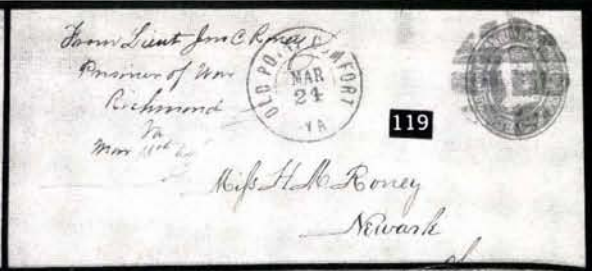 From Lieut Jno C Roney
Prisoner of War
Richmond
Va
Mar 11th
OLD POINT COMFORT
MAR
24
VA
119
Miss H. M. Roney
Newark